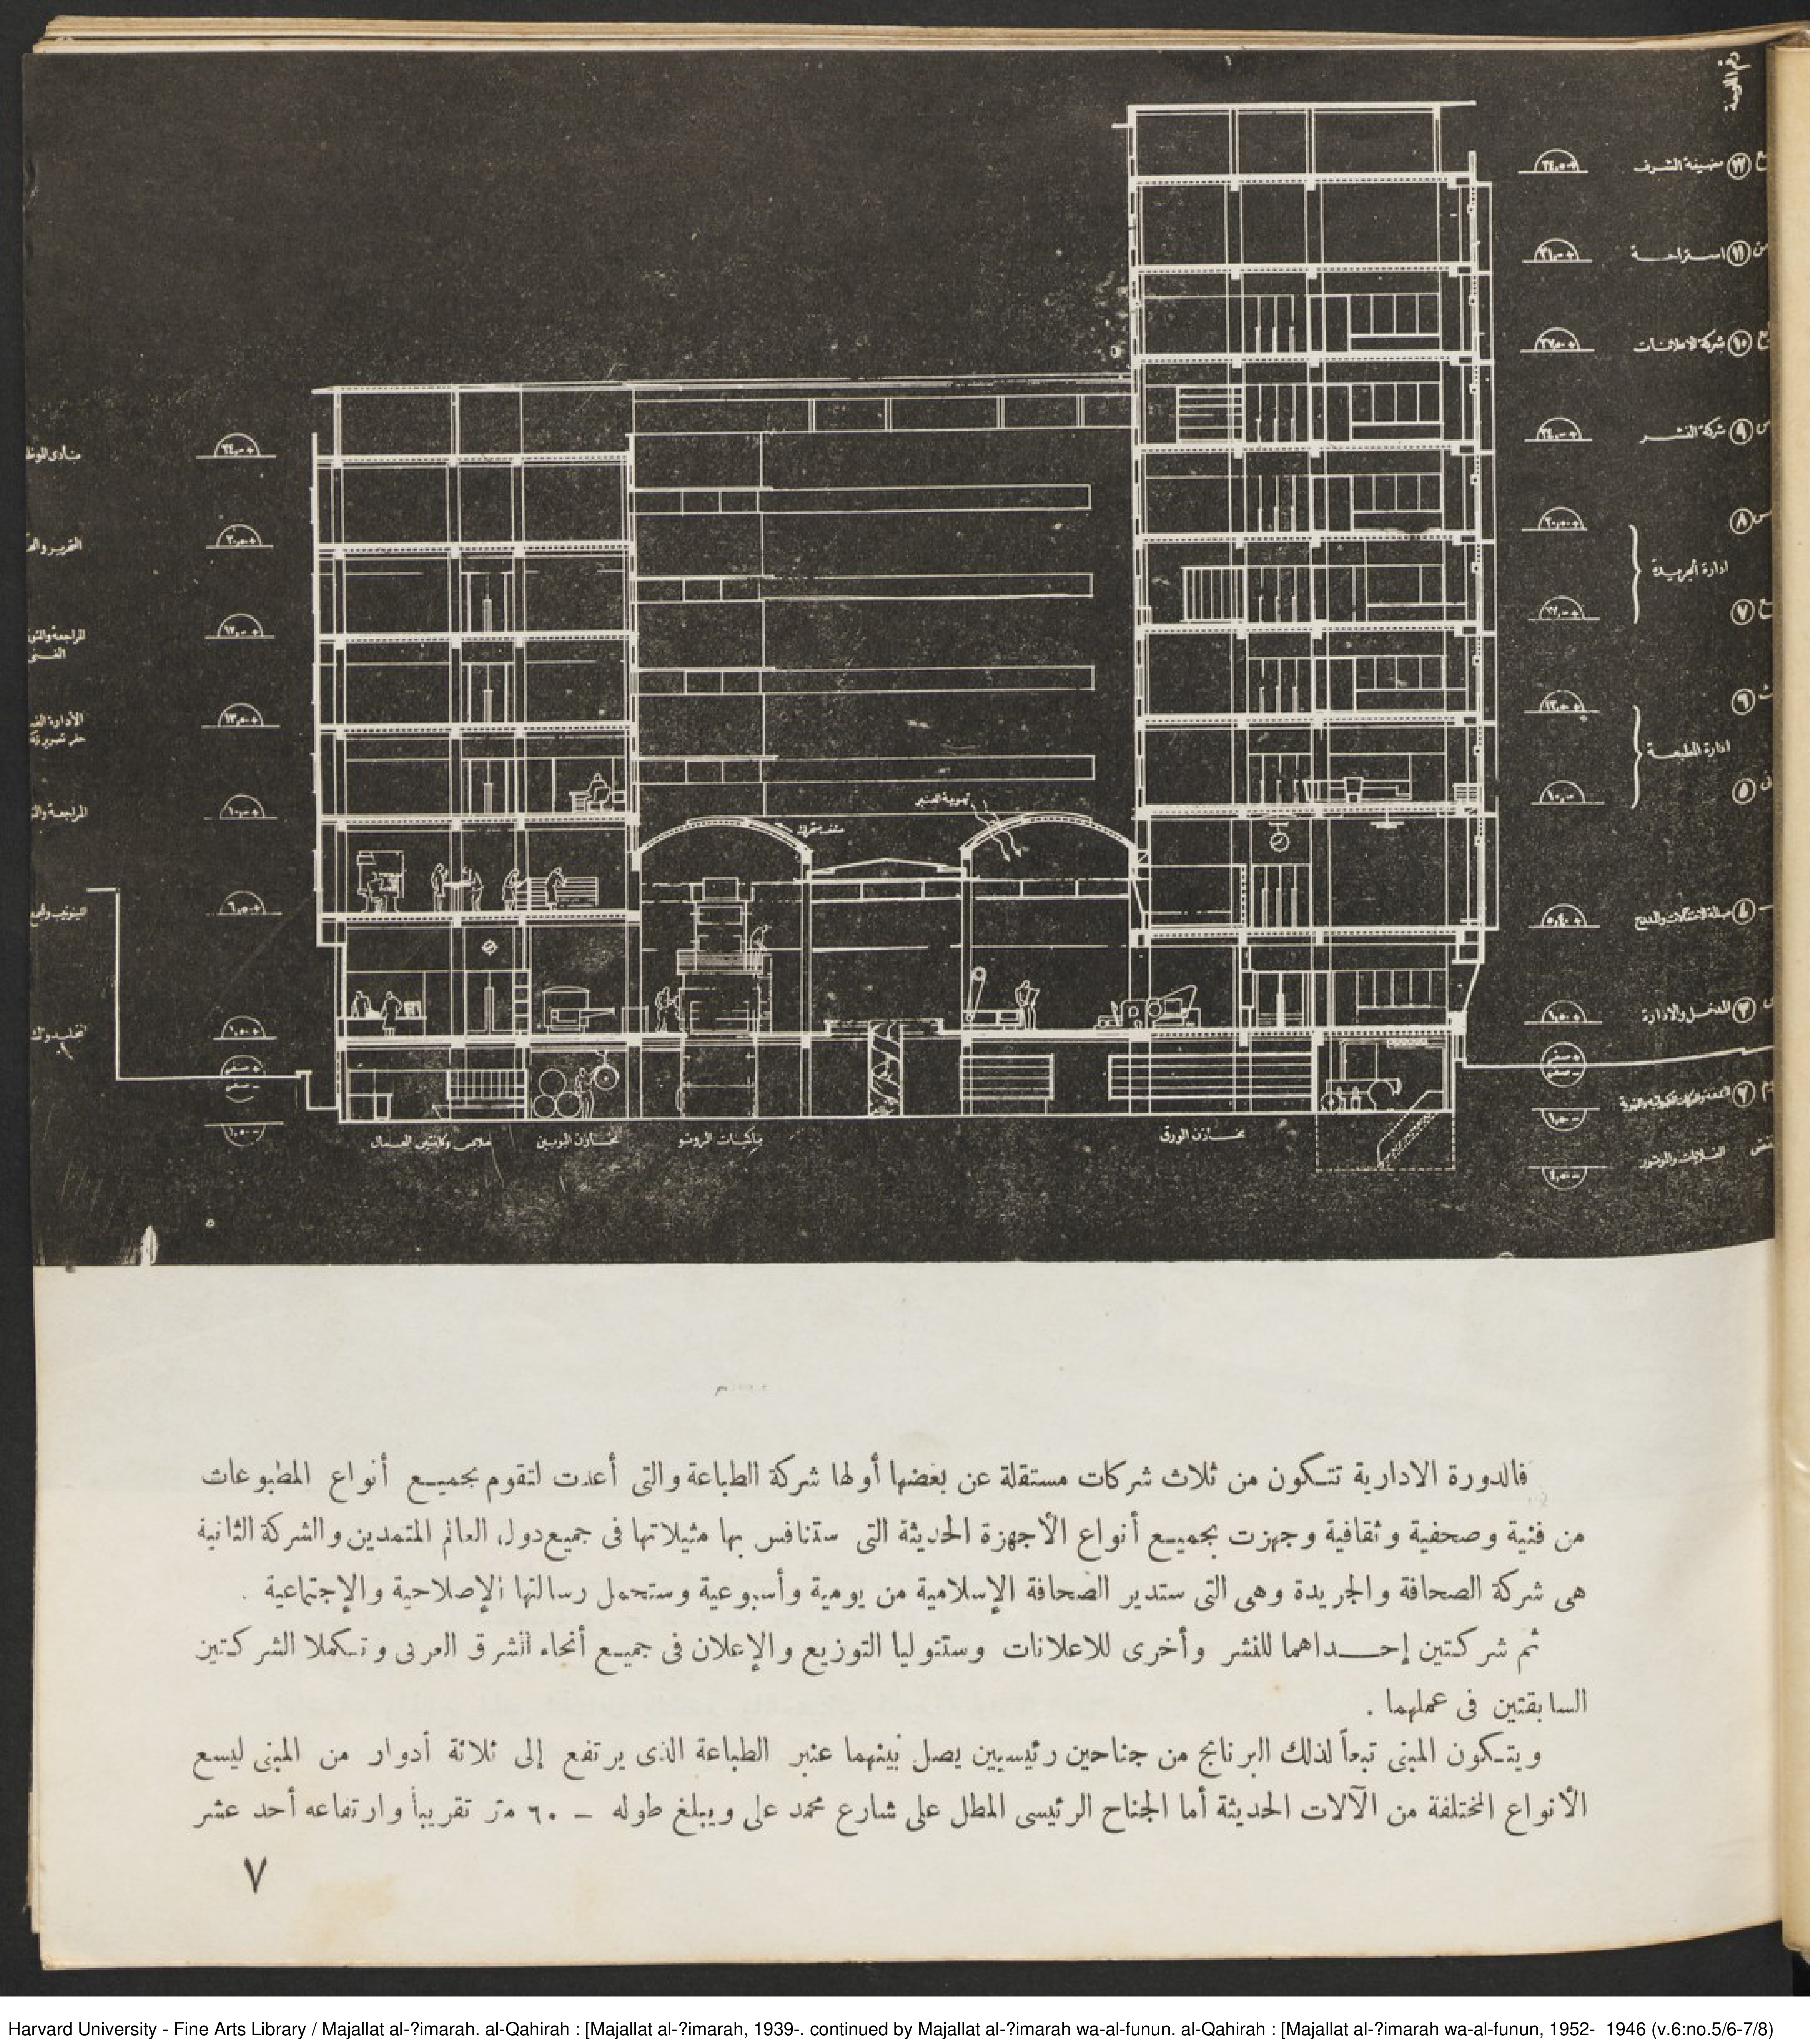 مضيفة الشرف
١١ استراحة
١٠ شركة الاعلانات
٩ شركة النشر
٨
ادارة الجريدة
٧
٦
ادارة المطبعة
٥
٤
٣ المدخل والادارة
٢
تهوية العنبر
سقف متحرك
مخازن الورق
ماكينات الروتو
مخازن البوبين
ملابس وكانتين العمال
فالدورة الادارية تتكون من ثلاث شركات مستقلة عن بعضها أولها شركة الطباعة والتى أعدت لتقوم بجميع أنواع المطبوعات
من فنية وصحفية وثقافية وجهزت بجميع أنواع الأجهزة الحديثة التى ستنافس بها مثيلاتها فى جميع دول العالم المتمدين والشركة الثانية
هى شركة الصحافة والجريدة وهى التى ستدير الصحافة الإسلامية من يومية وأسبوعية وستحمل رسالتها الإصلاحية والإجتماعية .
ثم شركتين إحداهما للنشر وأخرى للاعلانات وستتوليا التوزيع والإعلان فى جميع أنحاء الشرق العربى وتكملا الشركتين
السابقتين فى عملهما .
ويتكون المبنى تبعاً لذلك البرنامج من جناحين رئيسيين يصل بينهما عنبر الطباعة الذى يرتفع إلى ثلاثة أدوار من المبنى ليسع
الأنواع المختلفة من الآلات الحديثة أما الجناح الرئيسى المطل على شارع محمد على ويبلغ طوله - ٦٠ متر تقريباً وارتفاعه أحد عشر
٧
Harvard University - Fine Arts Library / Majallat al-?imarah. al-Qahirah : [Majallat al-?imarah, 1939-. continued by Majallat al-?imarah wa-al-funun. al-Qahirah : [Majallat al-?imarah wa-al-funun, 1952- 1946 (v.6:no.5/6-7/8)